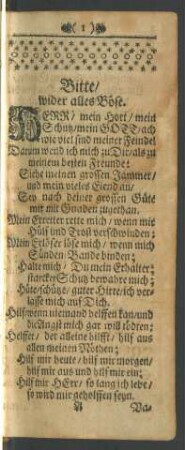 ( 1 )
Bitte/
wider alles Böse.
HERR/ mein Hort/ mein
Schutz/ mein GOTT/ ach
wie viel sind meiner Feinde!
Darum wend ich mich zu Dir/ als zu
meinem besten Freunde:
Siehe meinen grossen Jammer/
und mein vieles Elend an/
Sey nach deiner grossen Güte
mir mit Gnaden zugethan.
Mein Erretter rette mich/ wenn mir
Hülf und Trost verschwinden;
Mein Erlöser löse mich/ wenn mich
Sünden-Bande binden;
Halte mich/ Du mein Erhalter;
starcker Schutz bewahre mich;
Hüte/ schütze/ guter Hirte/ ich ver-
lasse mich auf Dich.
Hilf wenn niemand helffen kan/ und
die Angst mich gar will tödten;
Helffer/ der alleine hilfft/ hilf aus
allen meinen Nöthen;
Hilf mir heute/ hilf mir morgen/
hilf mir aus und hilf mir ein;
Hilf mir HErr/ so lang ich lebe/
so wird mir geholffen seyn.
A Va-